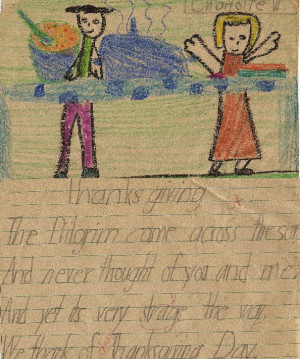 Thanks giving
The Pilgrim came across the sea
And never thought of you and me.
And yet its very strage the way
We think of Thanksgiving Day